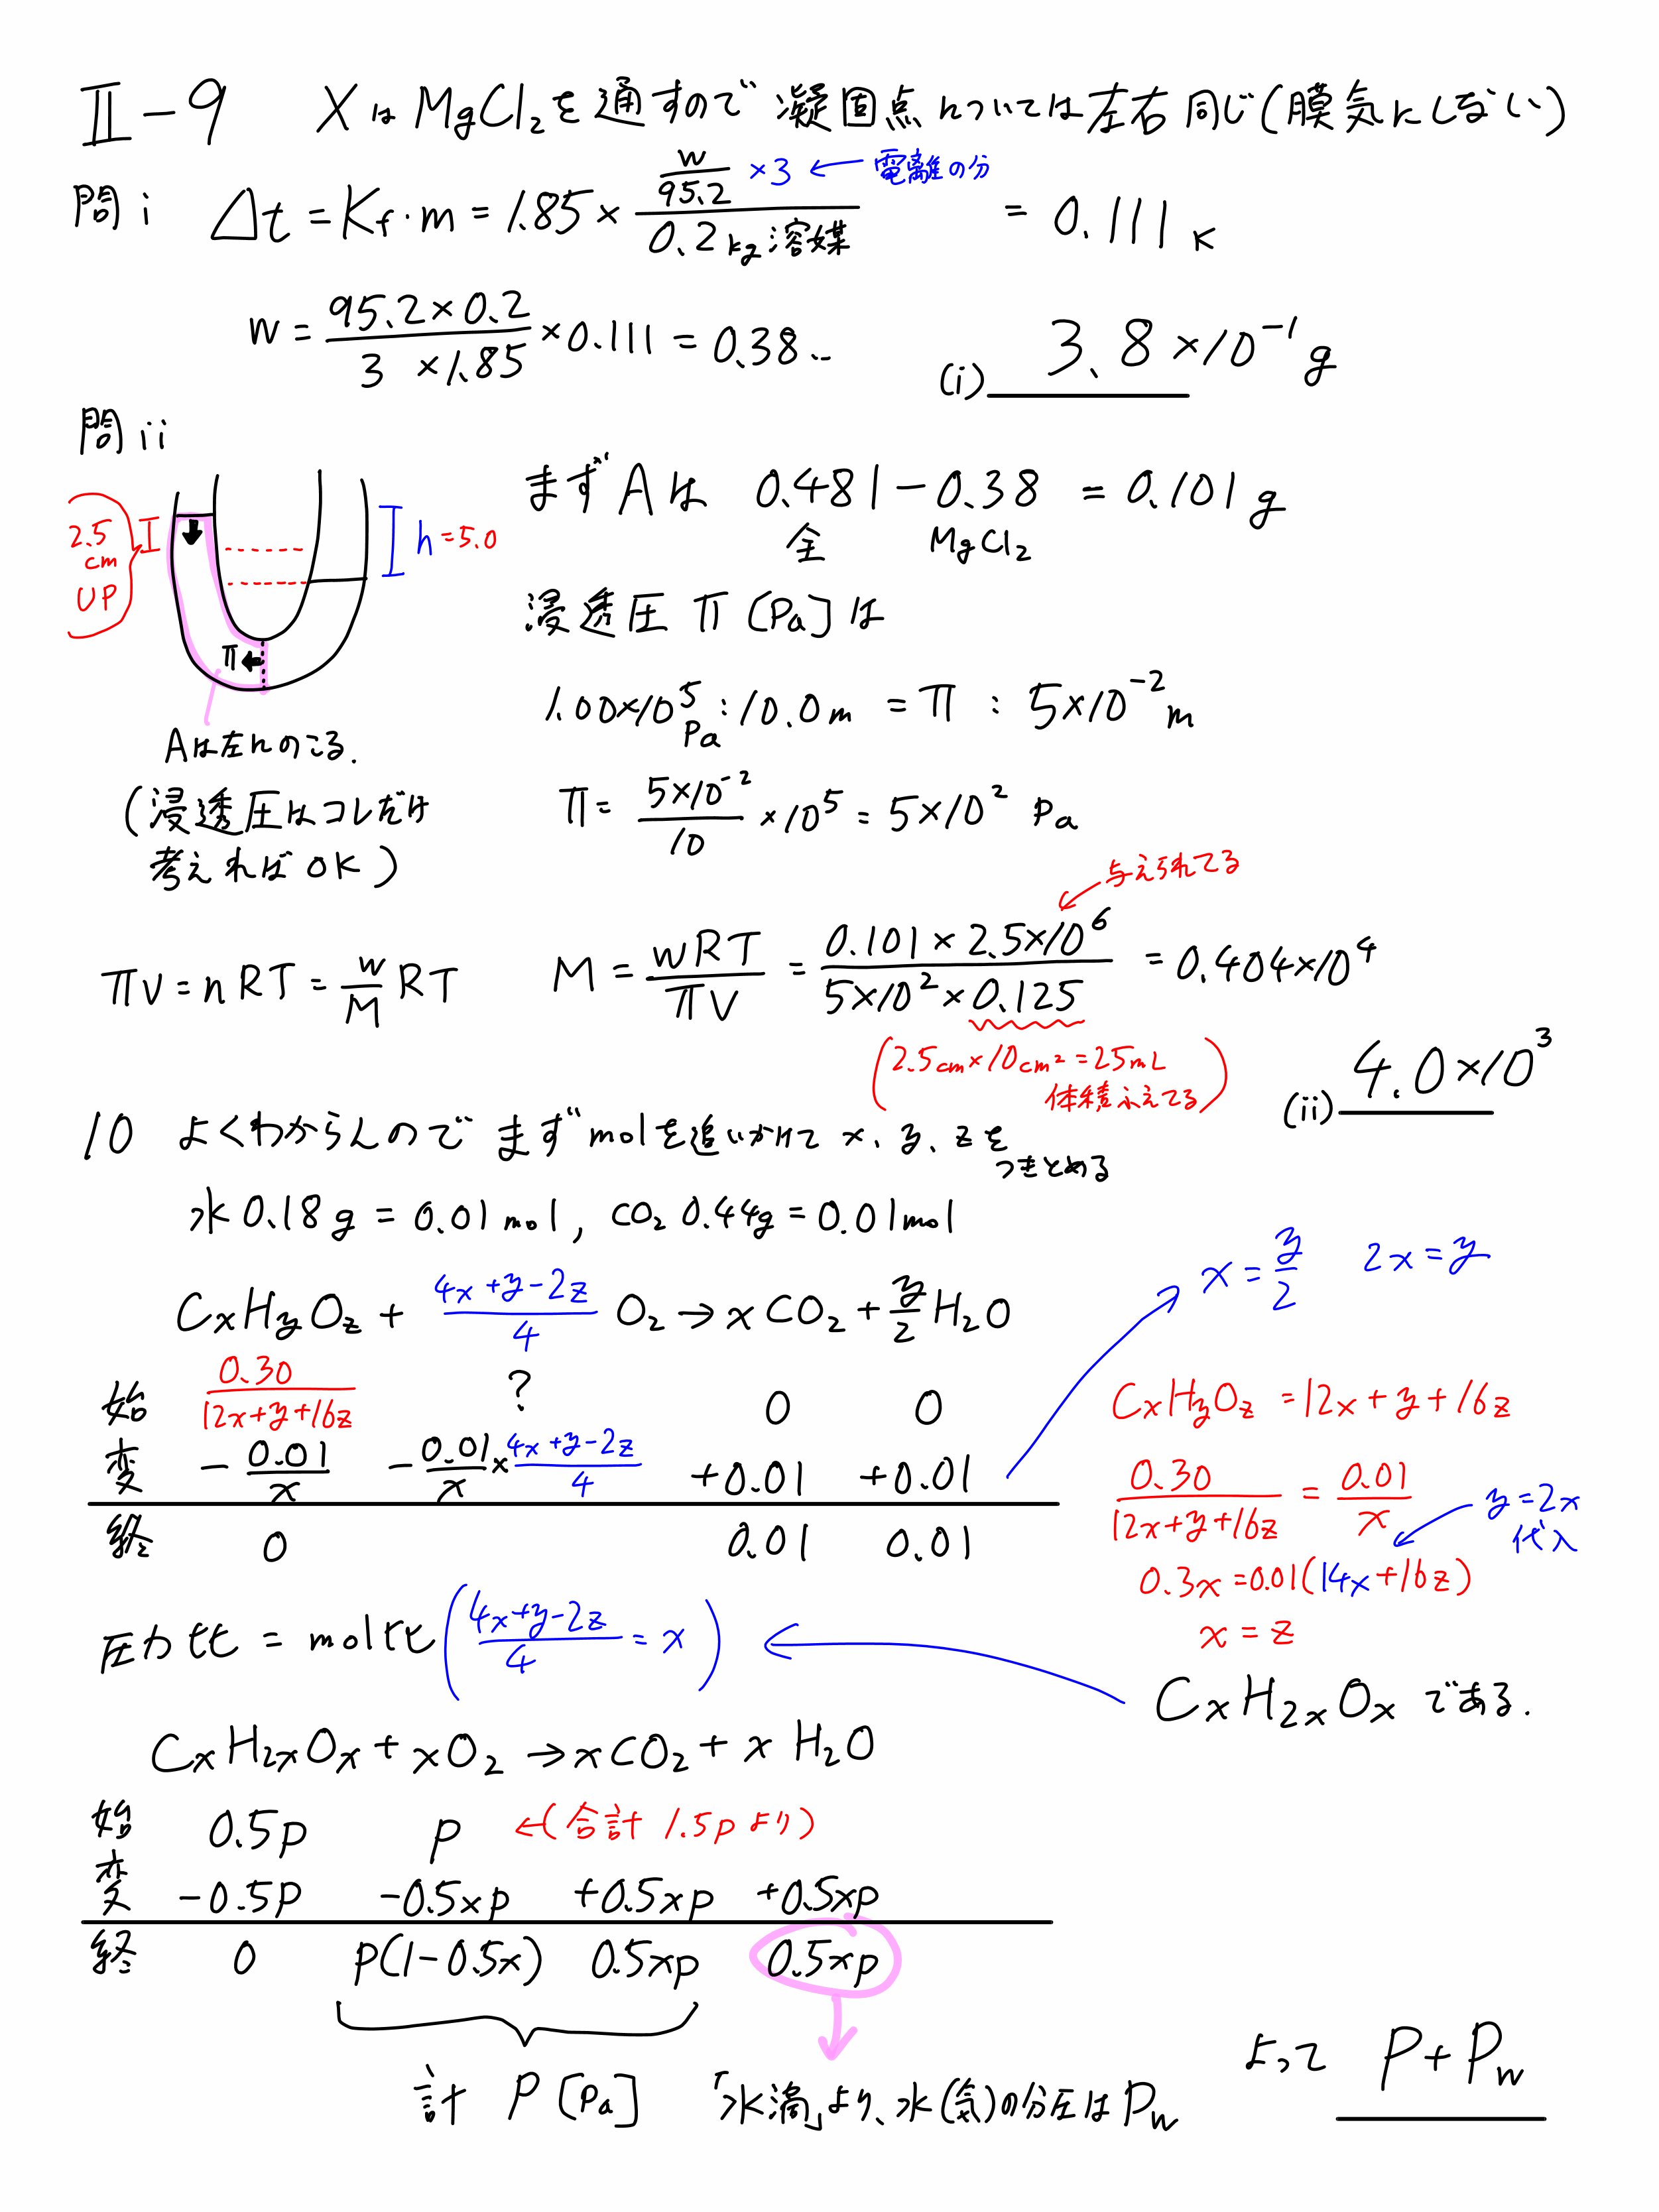 Ⅱ-9 XはMgCl₂を通すので凝固点については左右同じ(膜気にしない)
問i Δt = Kf・m = 1.85 × (w/95.2 ×3)/(0.2kg溶媒) = 0.111 K
← 電離の分
w = (95.2×0.2)/(3 ×1.85) ×0.111 = 0.38‥
(i) 3.8×10⁻¹ g
問ii
まずAは 0.481 - 0.38 = 0.101 g
全 MgCl₂
2.5
cm
UP
h=5.0
π
浸透圧 π [Pa]は
1.00×10⁵Pa : 10.0m = π : 5×10⁻²m
Aは左にのこる.
(浸透圧はコレだけ
考えればOK)
π = (5×10⁻²)/10 ×10⁵ = 5×10² Pa
←与えられてる
πV = nRT = w/M RT
M = wRT/πV = (0.101×2.5×10⁶)/(5×10²×0.125) = 0.404×10⁴
(2.5cm×10cm²=25mL
体積ふえてる)
(ii) 4.0×10³
10 よくわからんのでまずmolを追いかけて x、y、zを
つきとめる
水 0.18g = 0.01mol, CO₂ 0.44g = 0.01mol
x = y/2 2x = y
CxHyOz + (4x+y-2z)/4 O₂ → xCO₂ + y/2 H₂O
始 0.30/(12x+y+16z) ? 0 0
変 -0.01/x -0.01/x × (4x+y-2z)/4 +0.01 +0.01
終 0 0.01 0.01
CxHyOz = 12x+y+16z
0.30/(12x+y+16z) = 0.01/x
y=2x
代入
0.3x = 0.01(14x+16z)
x = z
圧力比 = mol比 ((4x+y-2z)/4 = x)
CxH₂xOx である.
CxH₂xOx + xO₂ → xCO₂ + x H₂O
始 0.5p p ←(合計 1.5pより)
変 -0.5p -0.5xp +0.5xp +0.5xp
終 0 p(1-0.5x) 0.5xp 0.5xp
計 P [Pa]
「水滴」より、水(気)の分圧はPw
よって P+Pw